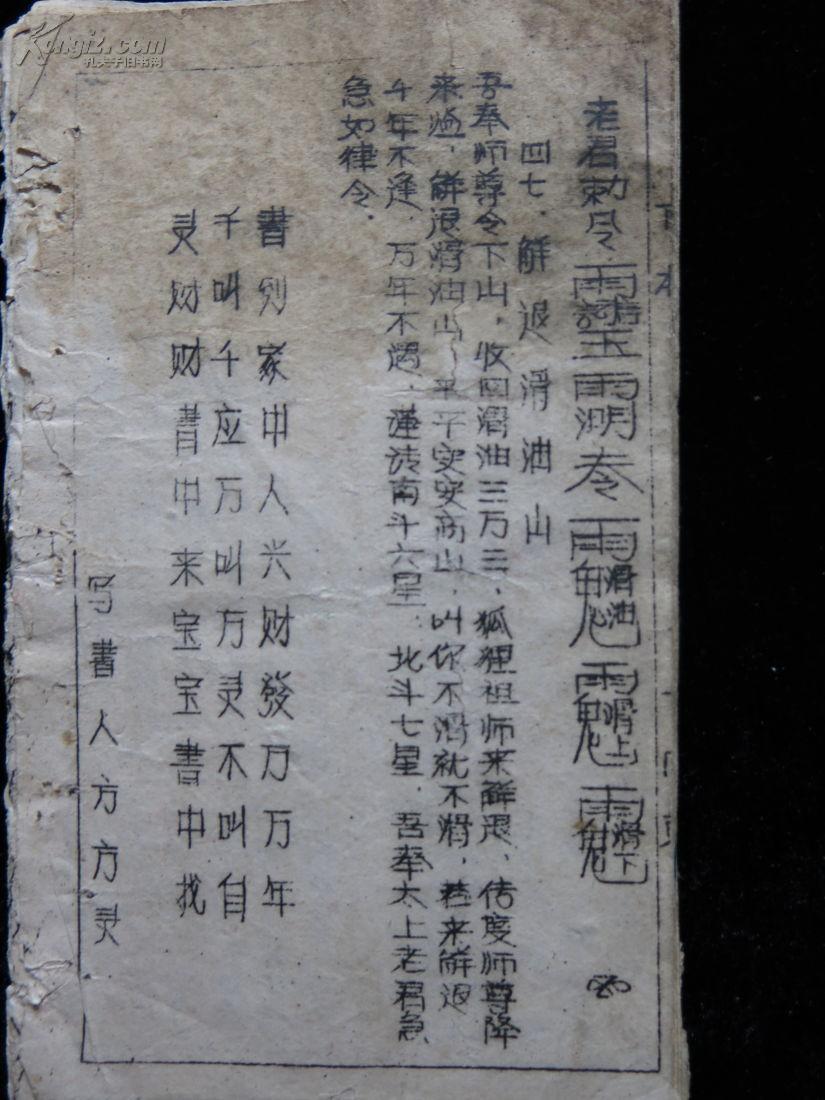 Kongfz.com
孔夫子旧书网
老君勅令
滑油
滑上
滑下
四七、解退滑油山
吾奉师尊令下山，收回滑油三万三，狐狸祖师来解退、传度师尊降
来临，解退滑油山，平平安安高山，叫你不滑就不滑，若来解退
千年不逢，万年不遇，谨请南斗六星，北斗七星，吾奉太上老君急
急如律令．
書到家中人兴财發万万年
千叫千应万叫万灵不叫自
灵财财書中来宝宝書中找
写書人方方灵